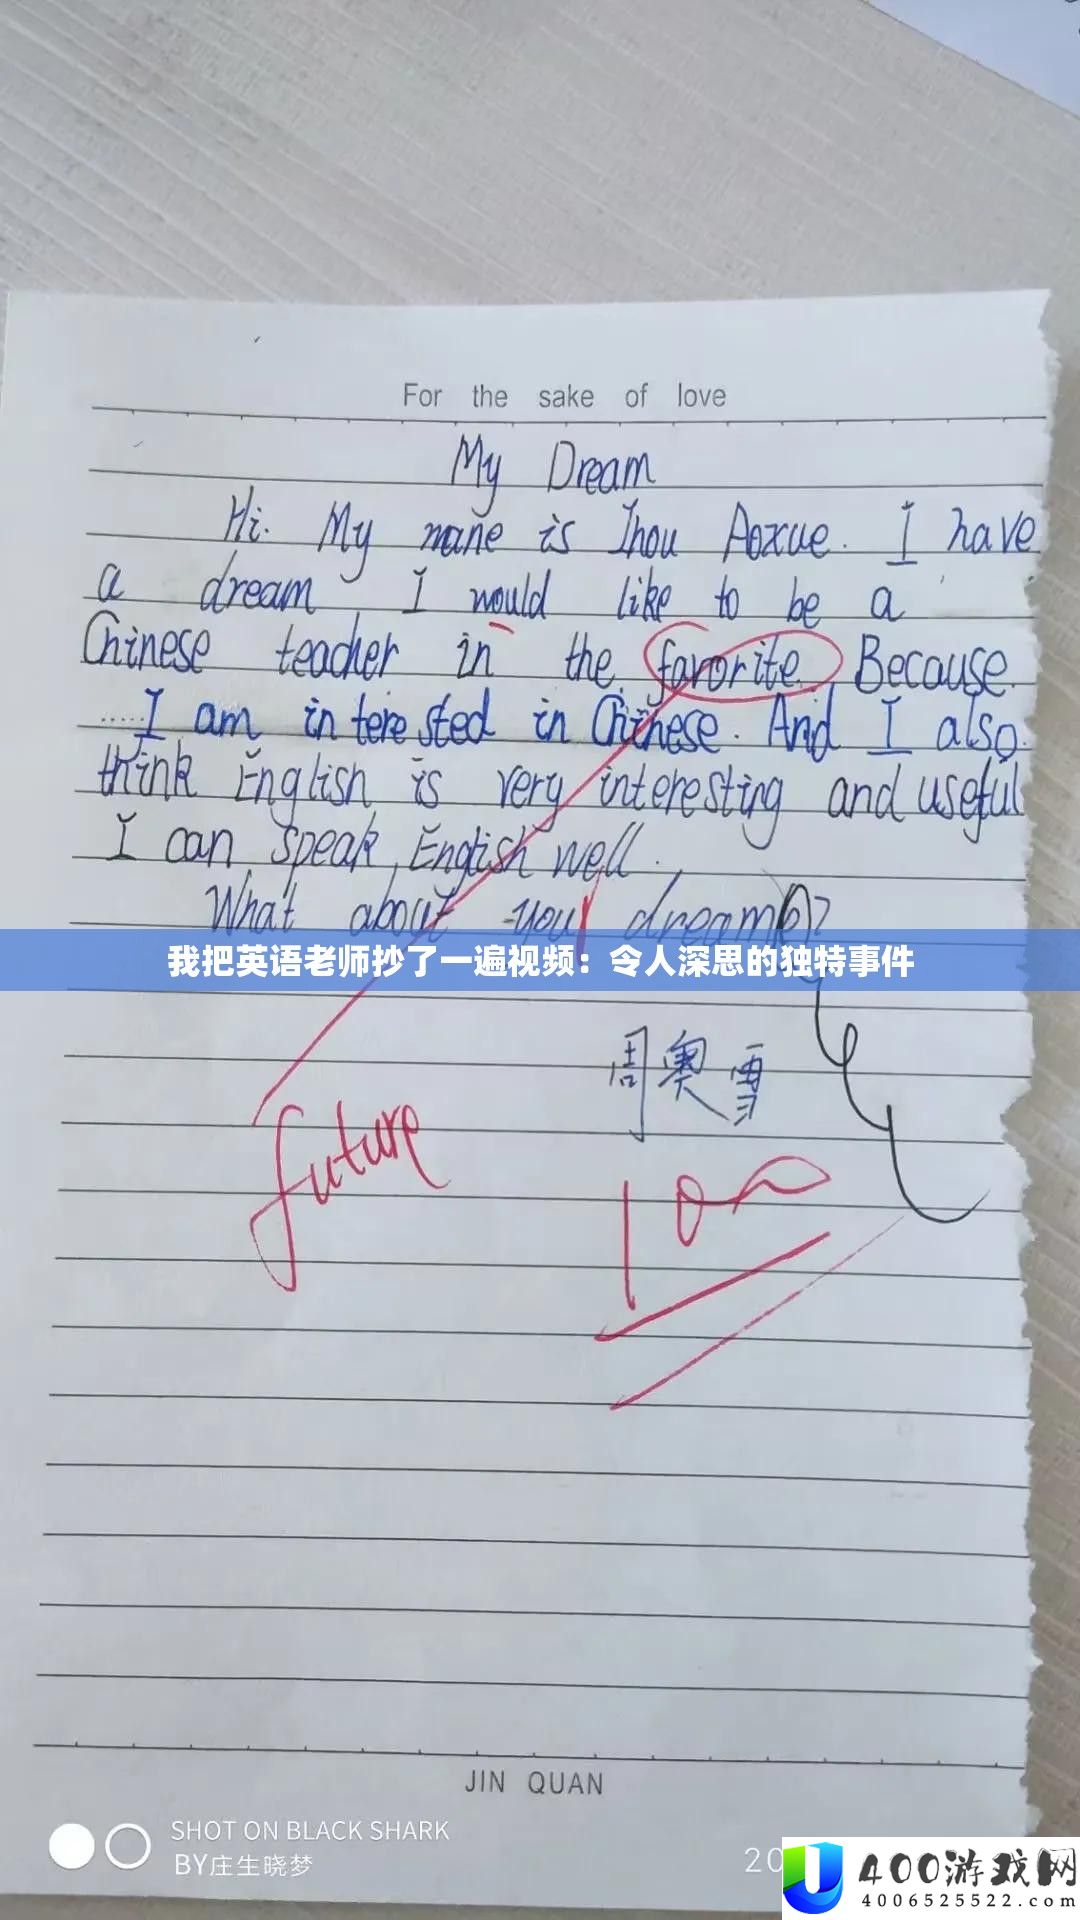 For the sake of love
My Dream
Hi. My name is Zhou Aoxue. I have
a dream I would like to be a
Chinese teacher in the favorite. Because
.....I am interested in Chinese. And I also
think English is very interesting and useful
I can speak English well.
What about your dream?
我把英语老师抄了一遍视频：令人深思的独特事件
周奥雪
future
100
JIN QUAN
SHOT ON BLACK SHARK
BY庄生晓梦
20
400游戏网
4006525522.com